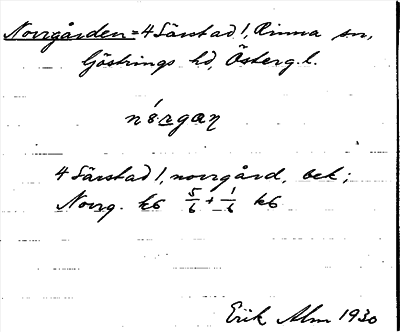 Norrgården = 4 Särstad 1, Rinna sn,
Göstrings hd, Österg. l.
4 Särstad 1, norrgård, bek;
Norrg. k6 5/6 + 1/6 k6
Erik Alm 1930